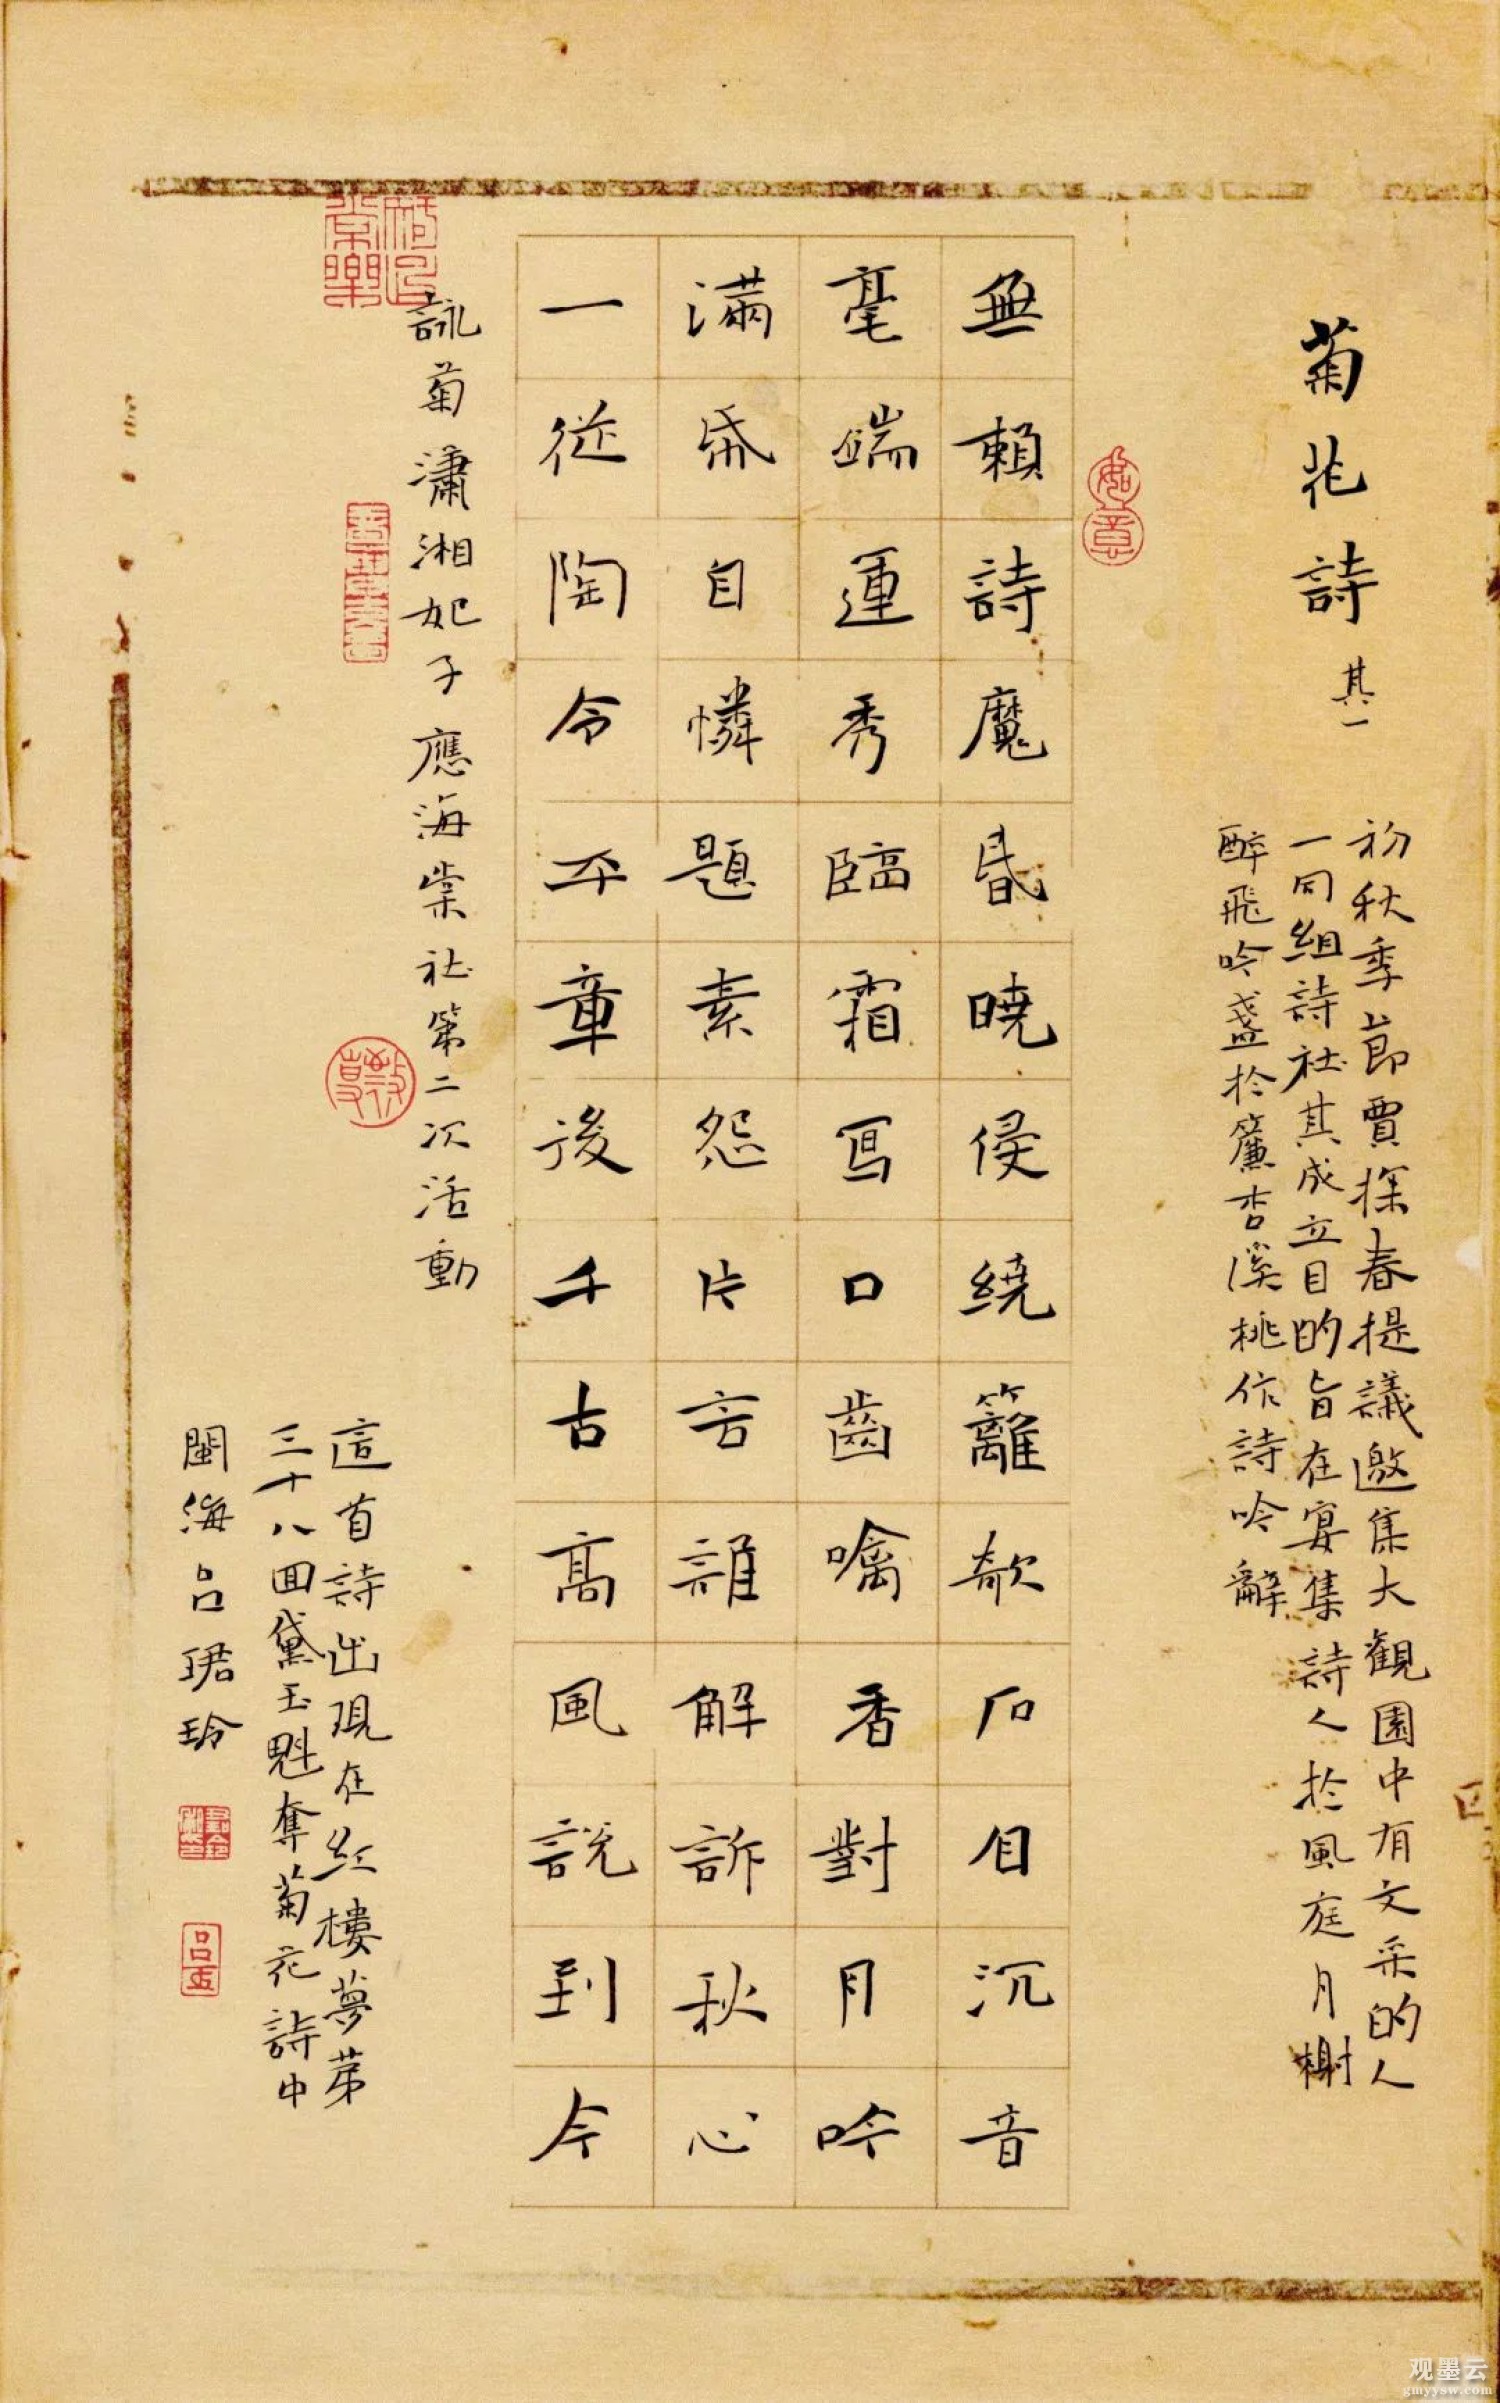 菊花詩 其一
初秋季節賈探春提議邀集大觀園中有文采的人
一同組詩社其成立目的旨在宴集詩人於風庭月榭
醉飛吟盞於簾杏溪桃作詩吟辭
無賴詩魔昏曉侵繞籬欹石自沉音
毫端運秀臨霜寫口齒噙香對月吟
滿紙自憐題素怨片言誰解訴秋心
一從陶令平章後千古高風說到今
詠菊瀟湘妃子應海棠社第二次活動
這首詩出現在紅樓夢第
三十八回黛玉魁奪菊花詩中
閩海呂珺玲
如意
呂
观墨云
gmyysw.com